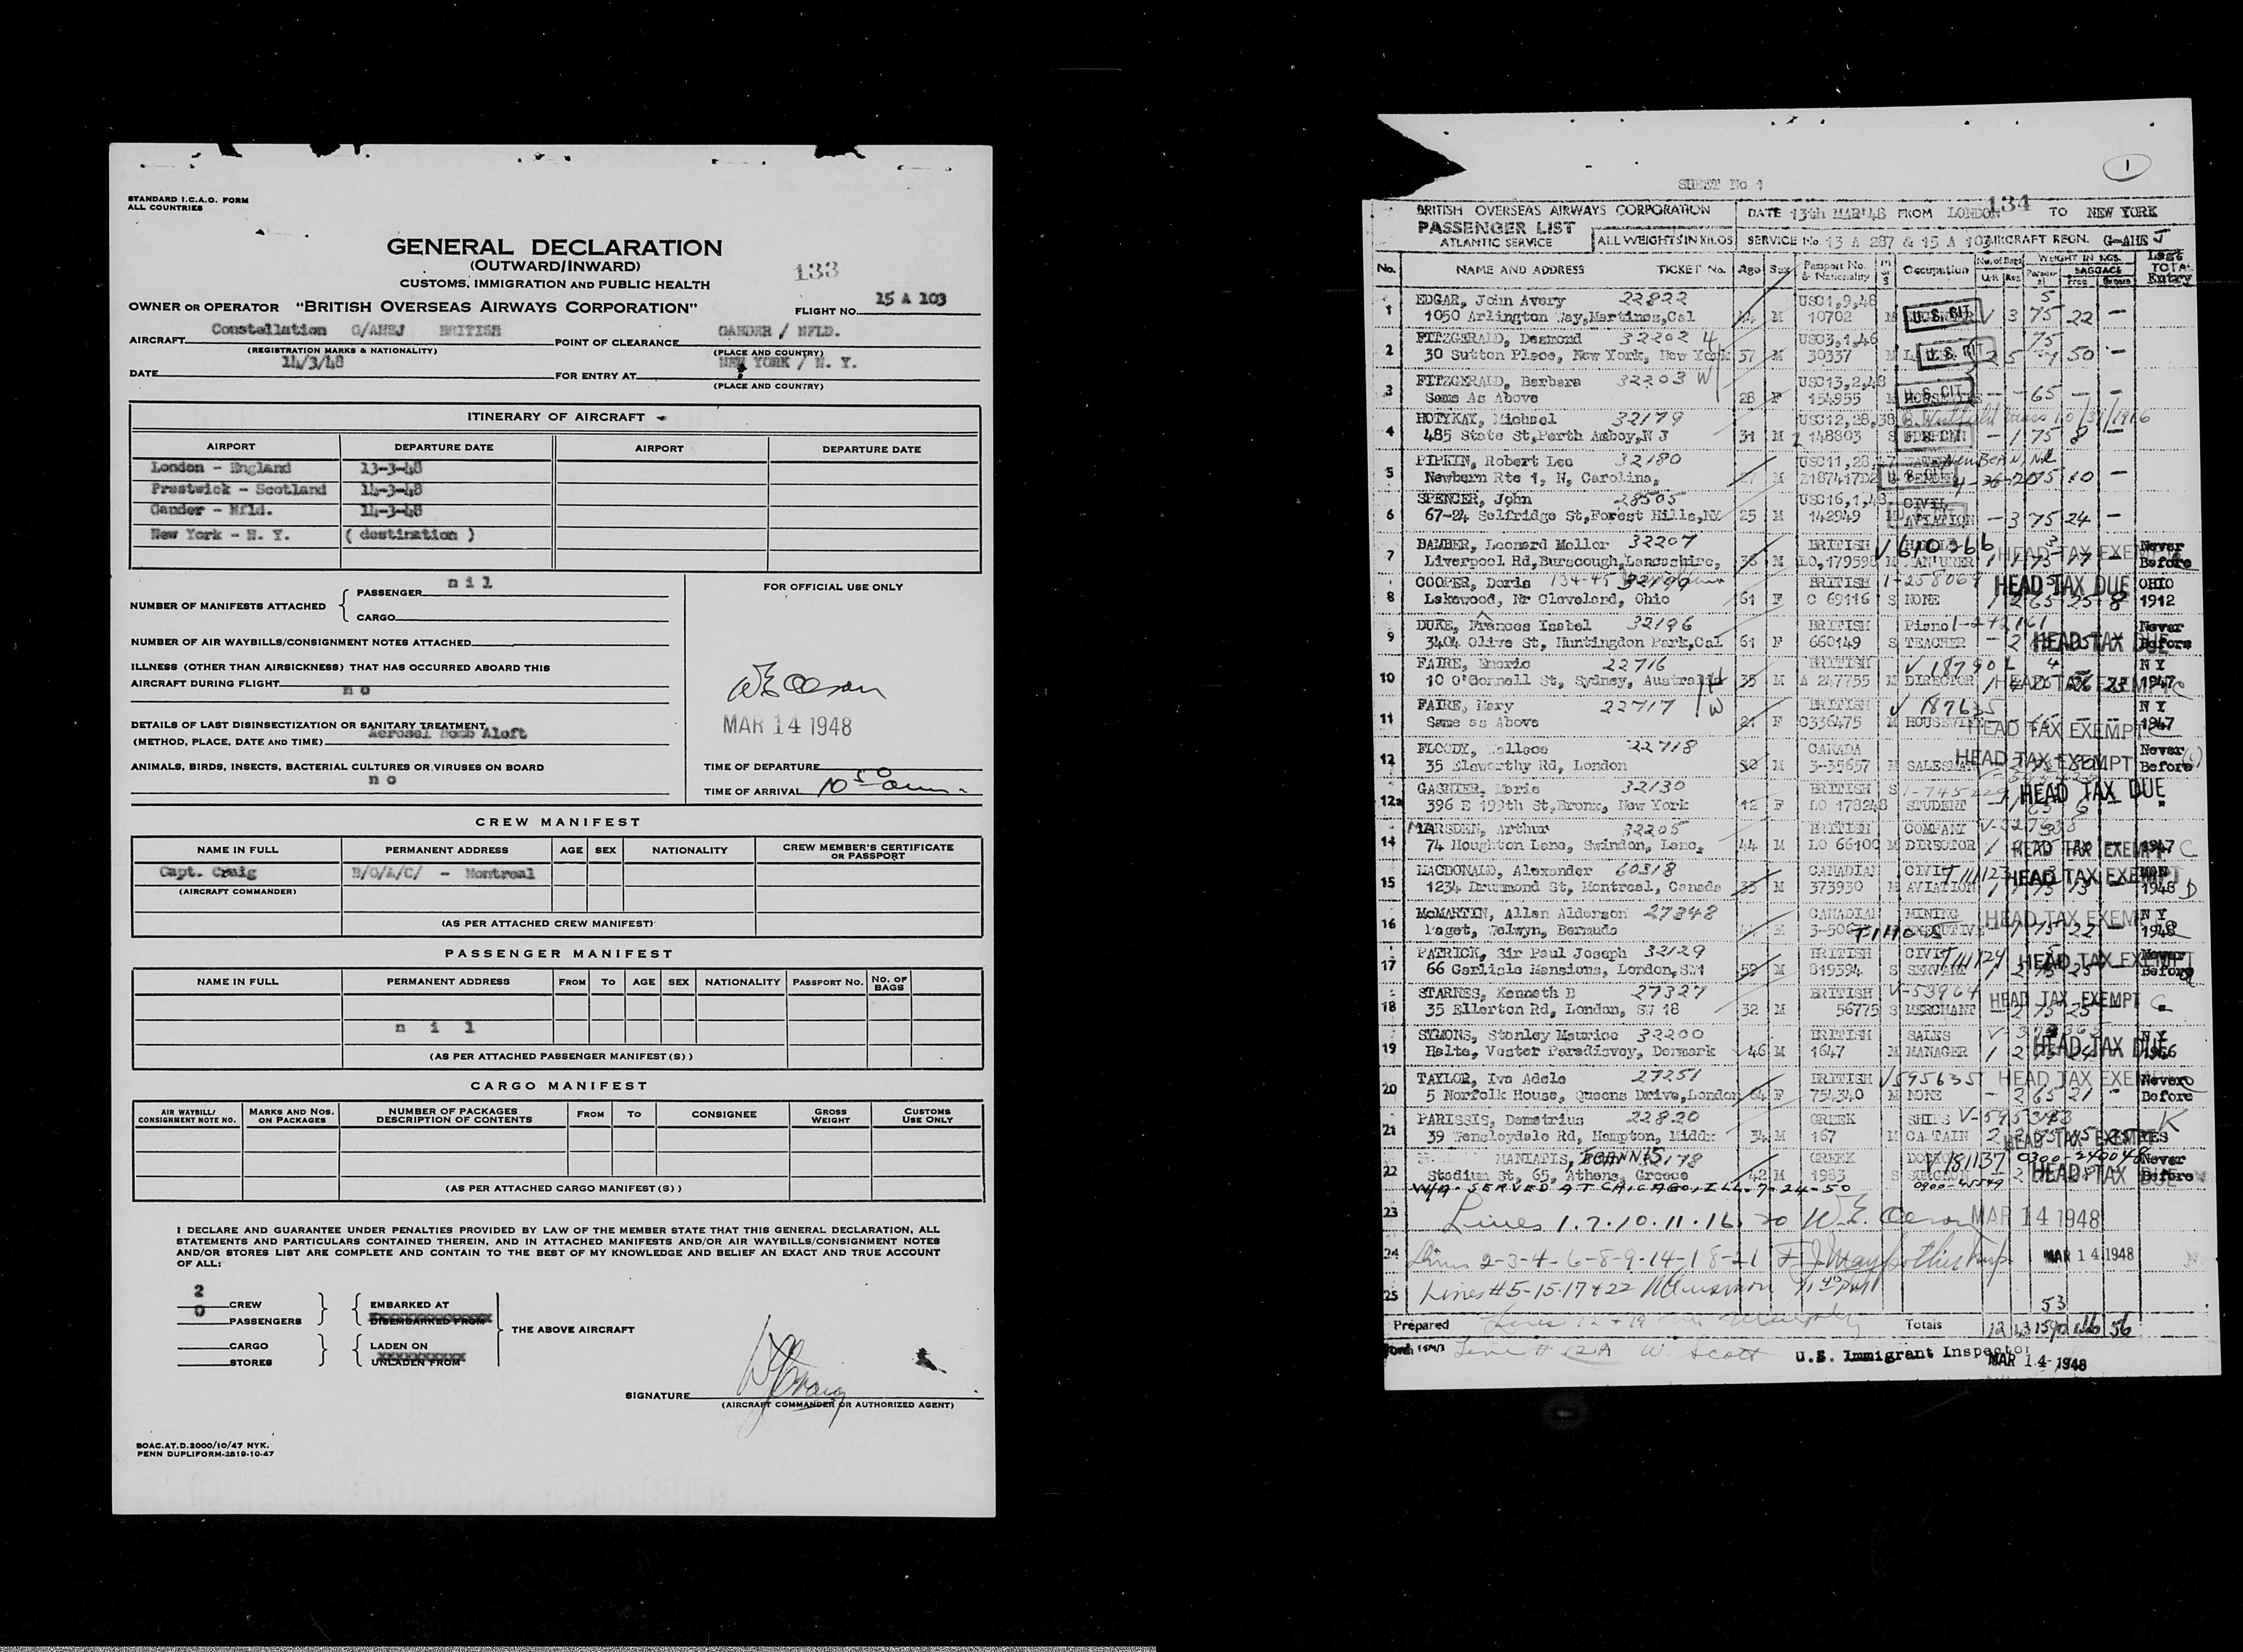 STANDARD I.C.A.O. FORM
ALL COUNTRIES
GENERAL DECLARATION
(OUTWARD/INWARD)
133
CUSTOMS, IMMIGRATION AND PUBLIC HEALTH
OWNER OR OPERATOR "BRITISH OVERSEAS AIRWAYS CORPORATION" FLIGHT NO. 15 A 103
Constellation G/AHEJ BRITISH GANDER / NFLD.
AIRCRAFT POINT OF CLEARANCE
(REGISTRATION MARKS & NATIONALITY) (PLACE AND COUNTRY)
14/3/48 NEW YORK / N. Y.
DATE FOR ENTRY AT
(PLACE AND COUNTRY)
ITINERARY OF AIRCRAFT
AIRPORT DEPARTURE DATE AIRPORT DEPARTURE DATE
London - England 13-3-48
Prestwick - Scotland 14-3-48
Gander - Nfld. 14-3-48
New York - N. Y. ( destination )
NUMBER OF MANIFESTS ATTACHED
PASSENGER nil
CARGO
NUMBER OF AIR WAYBILLS/CONSIGNMENT NOTES ATTACHED
ILLNESS (OTHER THAN AIRSICKNESS) THAT HAS OCCURRED ABOARD THIS
AIRCRAFT DURING FLIGHT no
DETAILS OF LAST DISINSECTIZATION OR SANITARY TREATMENT
(METHOD, PLACE, DATE AND TIME) Aerosol Bomb Aloft
ANIMALS, BIRDS, INSECTS, BACTERIAL CULTURES OR VIRUSES ON BOARD
no
FOR OFFICIAL USE ONLY
MAR 14 1948
TIME OF DEPARTURE
TIME OF ARRIVAL 10 50 am
CREW MANIFEST
NAME IN FULL PERMANENT ADDRESS AGE SEX NATIONALITY CREW MEMBER'S CERTIFICATE OR PASSPORT
Capt. Craig B/O/A/C/ - Montreal
(AIRCRAFT COMMANDER)
(AS PER ATTACHED CREW MANIFEST)
PASSENGER MANIFEST
NAME IN FULL PERMANENT ADDRESS FROM TO AGE SEX NATIONALITY PASSPORT NO. NO. OF BAGS
n i l
(AS PER ATTACHED PASSENGER MANIFEST(S))
CARGO MANIFEST
AIR WAYBILL/ CONSIGNMENT NOTE NO. MARKS AND NOS. ON PACKAGES NUMBER OF PACKAGES DESCRIPTION OF CONTENTS FROM TO CONSIGNEE GROSS WEIGHT CUSTOMS USE ONLY
(AS PER ATTACHED CARGO MANIFEST(S))
I DECLARE AND GUARANTEE UNDER PENALTIES PROVIDED BY LAW OF THE MEMBER STATE THAT THIS GENERAL DECLARATION, ALL
STATEMENTS AND PARTICULARS CONTAINED THEREIN, AND IN ATTACHED MANIFESTS AND/OR AIR WAYBILLS/CONSIGNMENT NOTES
AND/OR STORES LIST ARE COMPLETE AND CONTAIN TO THE BEST OF MY KNOWLEDGE AND BELIEF AN EXACT AND TRUE ACCOUNT
OF ALL:
2 CREW EMBARKED AT
0 PASSENGERS DISEMBARKED FROM
THE ABOVE AIRCRAFT
CARGO LADEN ON
STORES UNLADEN FROM
SIGNATURE
(AIRCRAFT COMMANDER OR AUTHORIZED AGENT)
BOAC.AT.D.2000/10/47 NYK.
PENN DUPLIFORM-2819-10-47
1
SHEET No 1
134
BRITISH OVERSEAS AIRWAYS CORPORATION DATE 13th MAR'48 FROM LONDON TO NEW YORK
PASSENGER LIST
ATLANTIC SERVICE ALL WEIGHTS IN KILOS SERVICE No. 13 A 287 & 15 A 103 AIRCRAFT REGN. G-AHEJ
No. NAME AND ADDRESS TICKET No. Age Sex Passport No. & Nationality Occupation No. of Bags WEIGHT IN KGS. BAGGAGE Last Entry
1 EDGAR, John Avery 22822 USC1,9,48
1050 Arlington Way,Martinez,Cal 44 M 10702 M U.S. CIT 3 75 22 -
2 FITZGERALD, Desmond 32202 USC3,1,46
30 Sutton Place, New York, New York 37 M 30337 M 50 -
3 FITZGERALD, Barbara 32203 W USC13,2,48
Same As Above 28 F 154955 U.S. CIT - 65 - -
4 HOTYKAY, Michael 32179 USC12,28,38
485 State St,Perth Amboy,N J 31 M 148803 S - 1 75 8 -
5 PIPKIN, Robert Lee 32180 USC11,28,47
Newbern Rte 1, N, Carolina, 27 M 75 10 -
6 SPENCER, John 28505 USC16,1,48 CIVIL
67-24 Selfridge St,Forest Hills,NY 25 M 142949 AVIATION - 3 75 24 -
7 BAMBER, Leonard Mellor 32207 BRITISH HEAD TAX EXEMPT Never
Liverpool Rd,Burscough,Lancashire, M LO,179598 M Before
8 COOPER, Doris BRITISH HEAD TAX DUE OHIO
Lakewood, Nr Cleveland, Ohio 61 F C 69116 S NONE 1 2 65 25 8 1912
9 DUKE, Frances Isabel 32196 BRITISH Piano Never
3404 Olive St, Huntingdon Park,Cal 61 F 660149 S TEACHER HEAD TAX DUE Before
10 FAIRE, Emeric 22716 BRITISH N Y
10 O'Connell St, Sydney, Australia 35 M A 247755 M DIRECTOR HEAD TAX EXEMPT 1947
11 FAIRE, Mary 22717 W BRITISH V 187635 N Y
Same as Above 21 F C336475 M HOUSEWIFE HEAD TAX EXEMPT 1947
12 FLOODY, Wallace 22718 CANADA Never
35 Elsworthy Rd, London 30 M 3-35657 M SALESMAN HEAD TAX EXEMPT Before
12a GASNIER, Marie 32130 BRITISH S
396 E 199th St,Bronx, New York 12 F LO 178248 STUDENT HEAD TAX DUE
14 MARSDEN, Arthur 32205 BRITISH COMPANY
74 Houghton Lane, Swindon, Lanc, 44 M LO 66100 M DIRECTOR HEAD TAX EXEMPT 1947
15 MACDONALD, Alexander 60318 CANADIAN CIVIL
1234 Drummond St, Montreal, Canada 35 M 373930 M AVIATION HEAD TAX EXEMPT 1948
16 McMARTIN, Allen Alderson 27348 CANADIAN MINING N Y
Paget, Welwyn, Bermuda M EXECUTIVE HEAD TAX EXEMPT 1948
17 PATRICK, Sir Paul Joseph 32129 BRITISH CIVIL Never
66 Carlisle Mansions, London,SW1 59 M 819394 S SERVANT HEAD TAX EXEMPT Before
18 STARNES, Kenneth B 27327 BRITISH V-53964
35 Ellerton Rd, London, SW 18 32 M 56775 S MERCHANT HEAD TAX EXEMPT
19 SYMONS, Stanley Maurice 32200 BRITISH SALES N Y
Halte, Vester Paradisvey, Denmark 46 M 1647 M MANAGER HEAD TAX DUE
20 TAYLOR, Iva Adele 27251 BRITISH V595635 HEAD TAX EXEMPT Never
5 Norfolk House, Queens Drive,London 64 F 754340 M NONE - 2 65 21 Before
21 PARISSIS, Demetrius 22820 GREEK SHIPS
39 Wensleydale Rd, Hampton, Middx 34 M 167 M CAPTAIN HEAD TAX EXEMPT YES
22 MANIATIS, IOANNIS 32178 GREEK V181137 0300-240048 Never
Stadium St, 65, Athens, Greece 42 M 1983 S SURGEON HEAD TAX DUE Before
W/A SERVED AT CHICAGO, ILL. 7-24-50
23 Lines 1.7.10.11.16. 20 MAR 14 1948
24 Lines 2-3-4-6-8-9-14-18-21 MAR 14 1948
25 Lines #5-15-17+22
53
Prepared Totals 12 43 1590 56
Line # 12A W. Scott U.S. Immigrant Inspector
MAR 14 1948